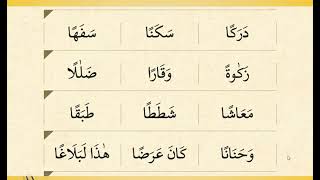 دَرَكًا سَكَنًا سَفَهًا
زَكٰوةً وَقَارًا ضَلٰلًا
مَعَاشًا شَطَطًا طَبَقًا
وَحَنَانًا كَانَ عَرَضًا هٰذَا لَبَلَاغًا